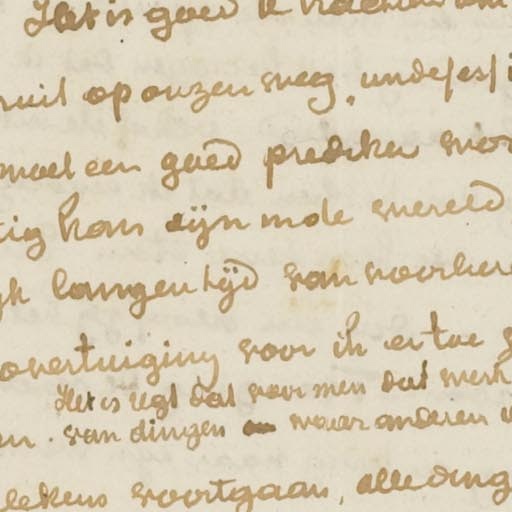 Het is goed te
ruil op onzen weg, undefessi
moet een goed prediker wor
tig kan zijn in de wereld
jk langen tijd van voorbere
overtuiging voor ik er toe g
Het is regt dat voor men dat werk
en. van dingen waar anderen
telkens voortgaan, alle ding